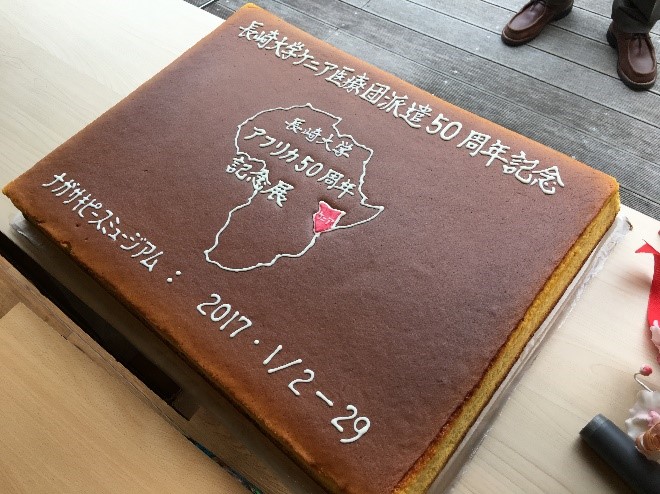 長崎大学ケニア医療団派遣50周年記念
長崎大学
アフリカ50周年
記念展
ケニア
ナガサキピースミュージアム : 2017・1/2-29